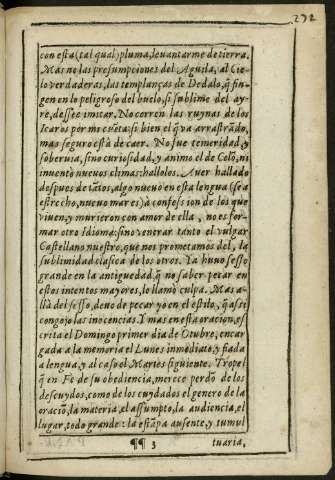 232
con esta (tal qual) pluma, levantarme de tierra.
Mas no las presumpciones del Aguila, al Cie-
lo verdaderas, las templanças de Dedalo, q̃ fin-
gen en lo peligroso del buelo, si sublime del ay-
re, dessee imitar. No corren las ruynas de los
Icaros por mi cuẽta: si bien el q̃ va arrastrãdo,
mas seguro està de caer. No fue temeridad, y
soberuia, sino curiosidad, y animo el de Colõ, ni
inuentò nueuos climas; hallolos. Auer hallado
despues de tãtos, algo nueuo en esta lengua (sea
estrecho, nueuo mares) à confession de los que
viuen, y murieron con amor de ella, no es for-
mar otro Idioma: sino venerar tanto el vulgar
Castellano nuestro, que nos prometamos del, la
sublimidad clasica de los otros. Ya huuo sesso
grande en la antiguedad, q̃ no saber pecar en
estos intentos mayores, lo llamò culpa. Mas a-
llà del sesso, deuo de pecar yo en el estilo, q̃ assi
congojo las inocencias. Y mas en esta oracion, es
crita el Domingo primer dia de Otubre, encar
gada a la memoria el Lunes inmediato, y fiada
a lengua, y al caso el Martes siguiente. Tropel
q̃ en Fe de su obediencia, merece perdõ de los
descuydos, como de los cuydados el genero de la
oraciõ, la materia, el assumpto, la audiencia, el
lugar, todo grande: la estãpa ausente, y tumul
¶¶ 3 tuaria,